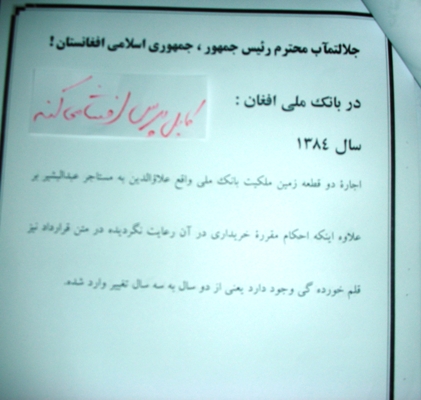 جلالتمآب محترم رئیس جمهور ، جمهوری اسلامی افغانستان !
در بانک ملی افغان :
کابل پرس افشا می کند
سال ١٣٨٤
اجارۀ دو قطعه زمین ملکیت بانک ملی واقع علاؤالدین به مستاجر عبدالبشیر بر
علاوه اینکه احکام مقررۀ خریداری در آن رعایت نگردیده در متن قرارداد نیز
قلم خورده گی وجود دارد یعنی از دو سال به سه سال تغییر وارد شده.